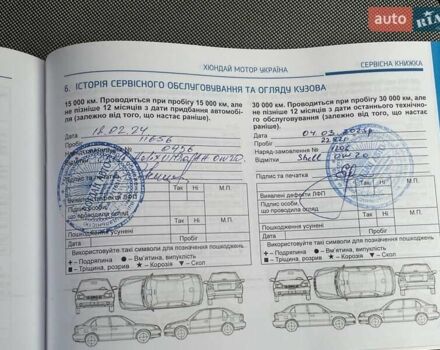 auto RIA
ХЮНДАЙ МОТОР УКРАЇНА
СЕРВІСНА КНИЖКА
6. ІСТОРІЯ СЕРВІСНОГО ОБСЛУГОВУВАННЯ ТА ОГЛЯДУ КУЗОВА
15 000 км. Проводиться при пробігу 15 000 км, але
не пізніше 12 місяців з дати придбання автомобі-
ля (залежно від того, що настає раніше).
Дата 18.02.24
Пробіг 11656
0456
0W20
Підпис та печатка
Так Ні М.П.
Виявлені дефекти ЛФП
Підпис особи,
що проводила огляд
Пошкодження усунені
Дата Пробіг
Використовуйте такі символи для позначення пошкоджень
+ – Подряпина ● – Вм'ятина, випуклість
■ – Тріщина, розрив ★ – Корозія ▼ – Скол
30 000 км. Проводиться при пробігу 30 000 км, але
не пізніше 12 місяців з дати останнього технічно-
го обслуговування (залежно від того, що настає
раніше).
Дата 04.03.2025р
Пробіг
Наряд-замовлення №
Відмітки Shell 0W20
Підпис та печатка
Так Ні М.П.
Виявлені дефекти ЛФП
Підпис особи,
що проводила огляд
Пошкодження усунені
Дата Пробіг
Використовуйте такі символи для позначення пошкоджень
+ – Подряпина ● – Вм'ятина, випуклість
■ – Тріщина, розрив ★ – Корозія ▼ – Скол